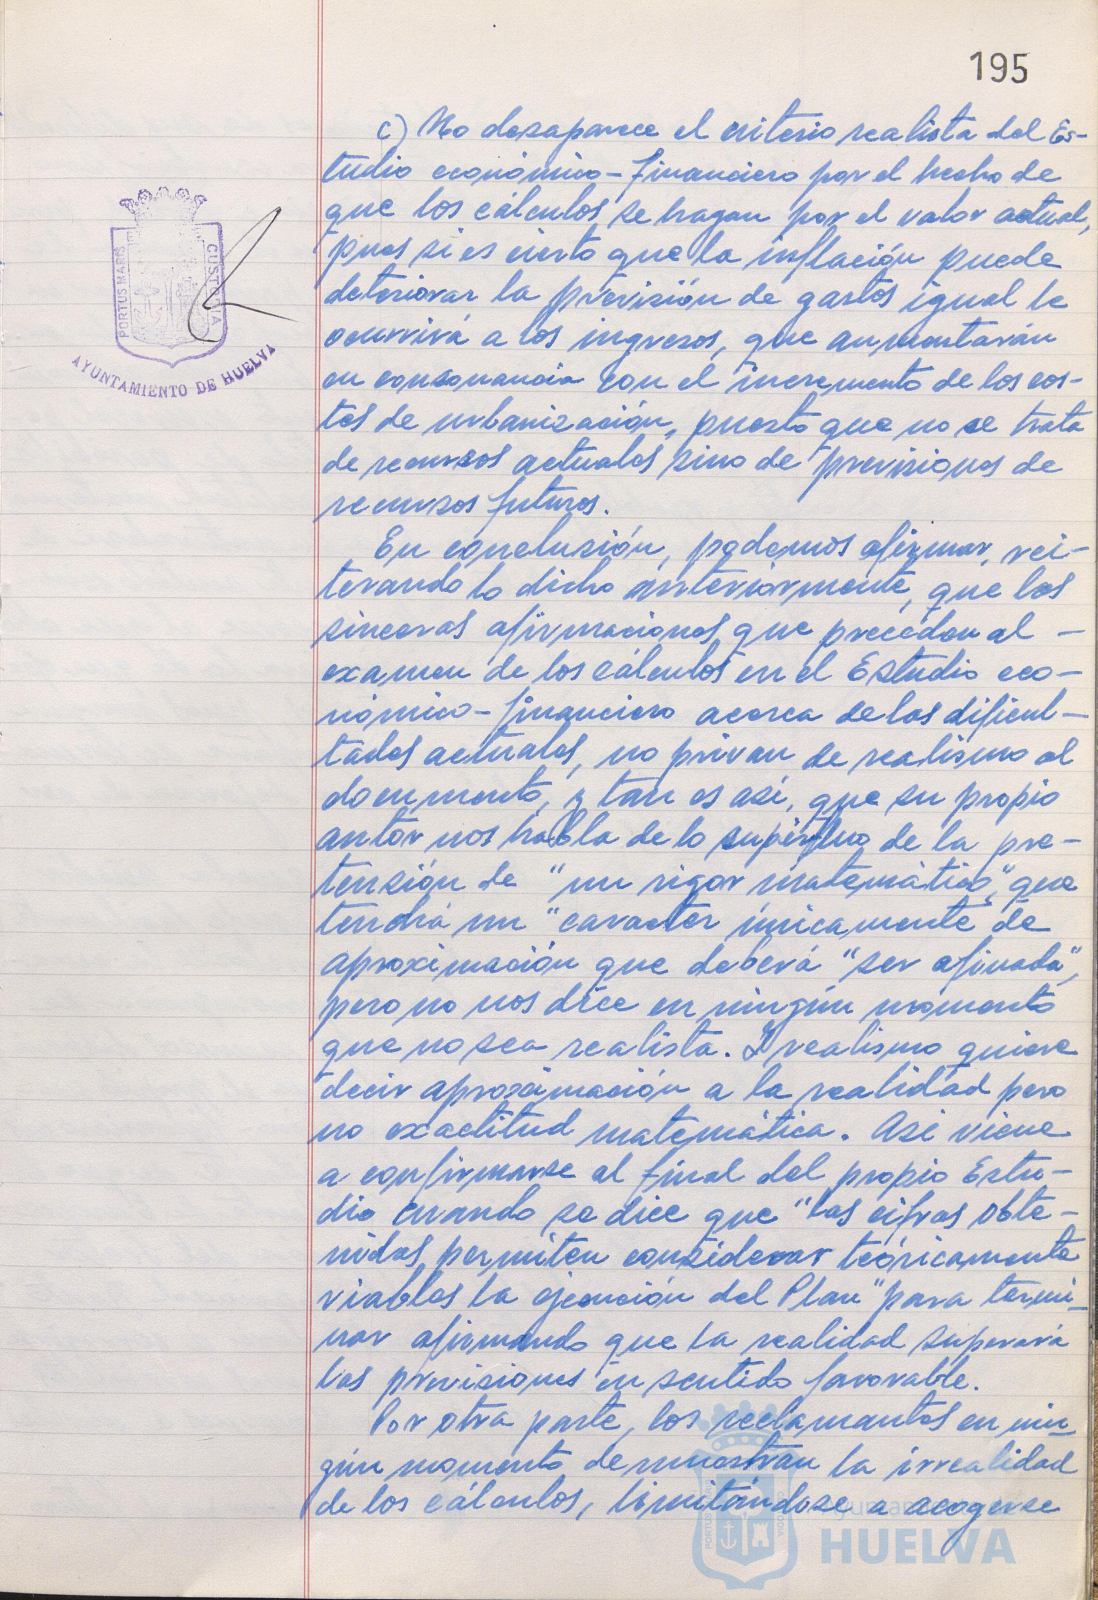 195
c) No desaparece el criterio realista del Es-
tudio económico-financiero por el hecho de
que los cálculos se hagan por el valor actual,
pues si es cierto que la inflación puede
deteriorar la previsión de gastos igual le
ocurrirá a los ingresos, que aumentarán
en consonancia con el incremento de los cos-
tes de urbanización, puesto que no se trata
de recursos actuales sino de previsiones de
recursos futuros.
En conclusión, podemos afirmar, rei-
terando lo dicho anteriormente, que las
sinceras afirmaciones que preceden al -
examen de los cálculos en el Estudio eco-
nómico-financiero acerca de las dificul-
tades actuales, no privan de realismo al
documento, y tan es así, que su propio
autor nos habla de lo supérfluo de la pre-
tensión de "un rigor matemático", que
tendrá un "caracter únicamente de
aproximación que deberá "ser afinada",
pero no nos dice en ningún momento
que no sea realista. Y realismo quiere
decir aproximación a la realidad pero
no exactitud matemática. Así viene
a confirmarse al final del propio Estu-
dio cuando se dice que "las cifras obte-
nidas permiten considerar teóricamente
viables la ejecución del Plan" para termi-
nar afirmando que la realidad superará
las previsiones en sentido favorable.
Por otra parte, los reclamantes en nin-
gún momento demuestran la irrealidad
de los cálculos, limitándose a acogerse
PORTUS MARIS
CUSTODIA
AYUNTAMIENTO DE HUELVA
Ayuntamiento de
HUELVA